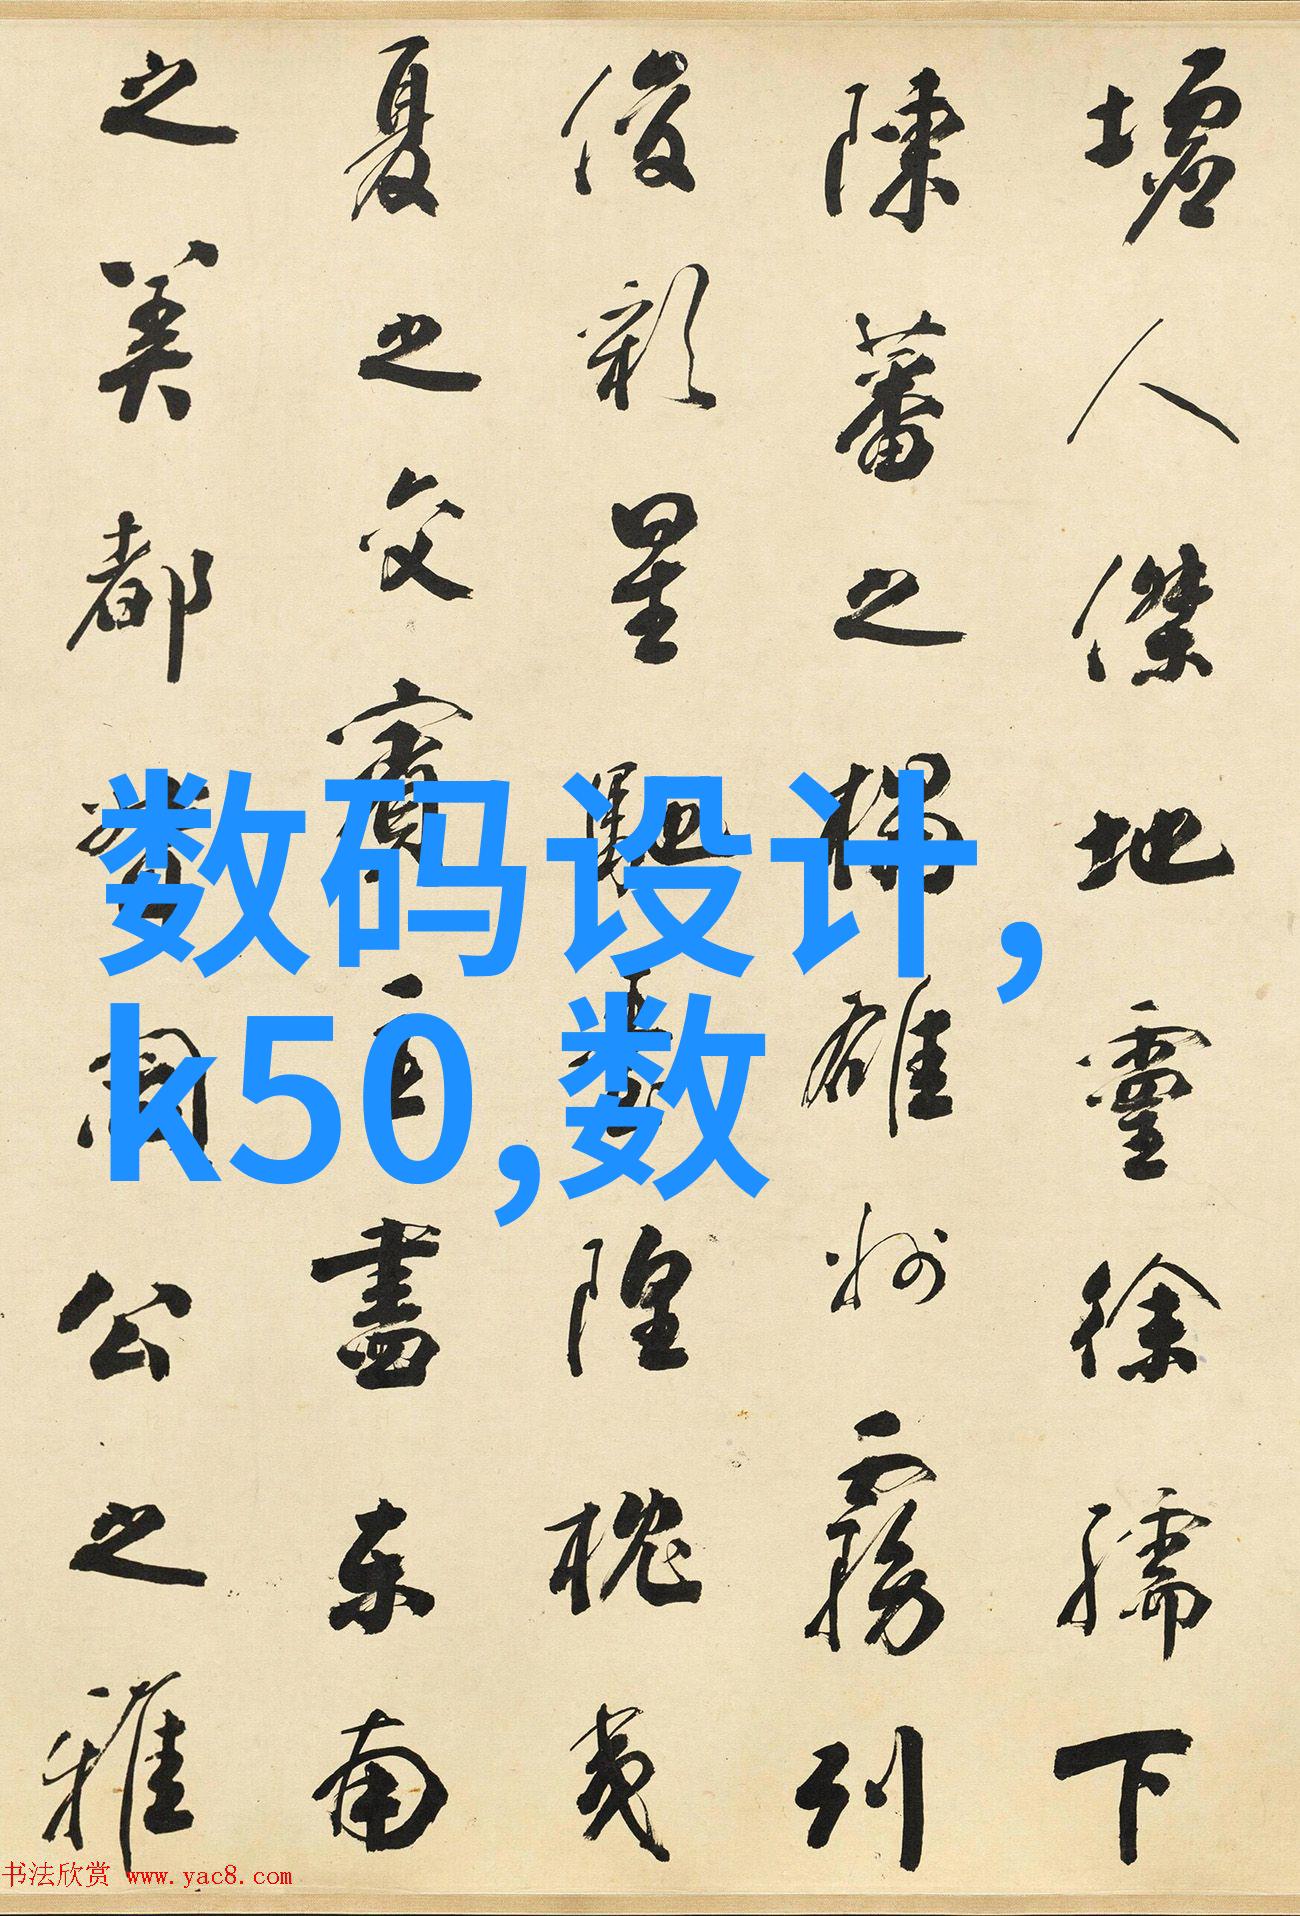 墟人傑地靈徐孺下
陳蕃之榻雄州霧列
俊彩星馳臺隍枕夷
夏之交賓主盡東南
之美都督閻公之雅
数码设计,
k50,数
书法欣赏 www.yac8.com